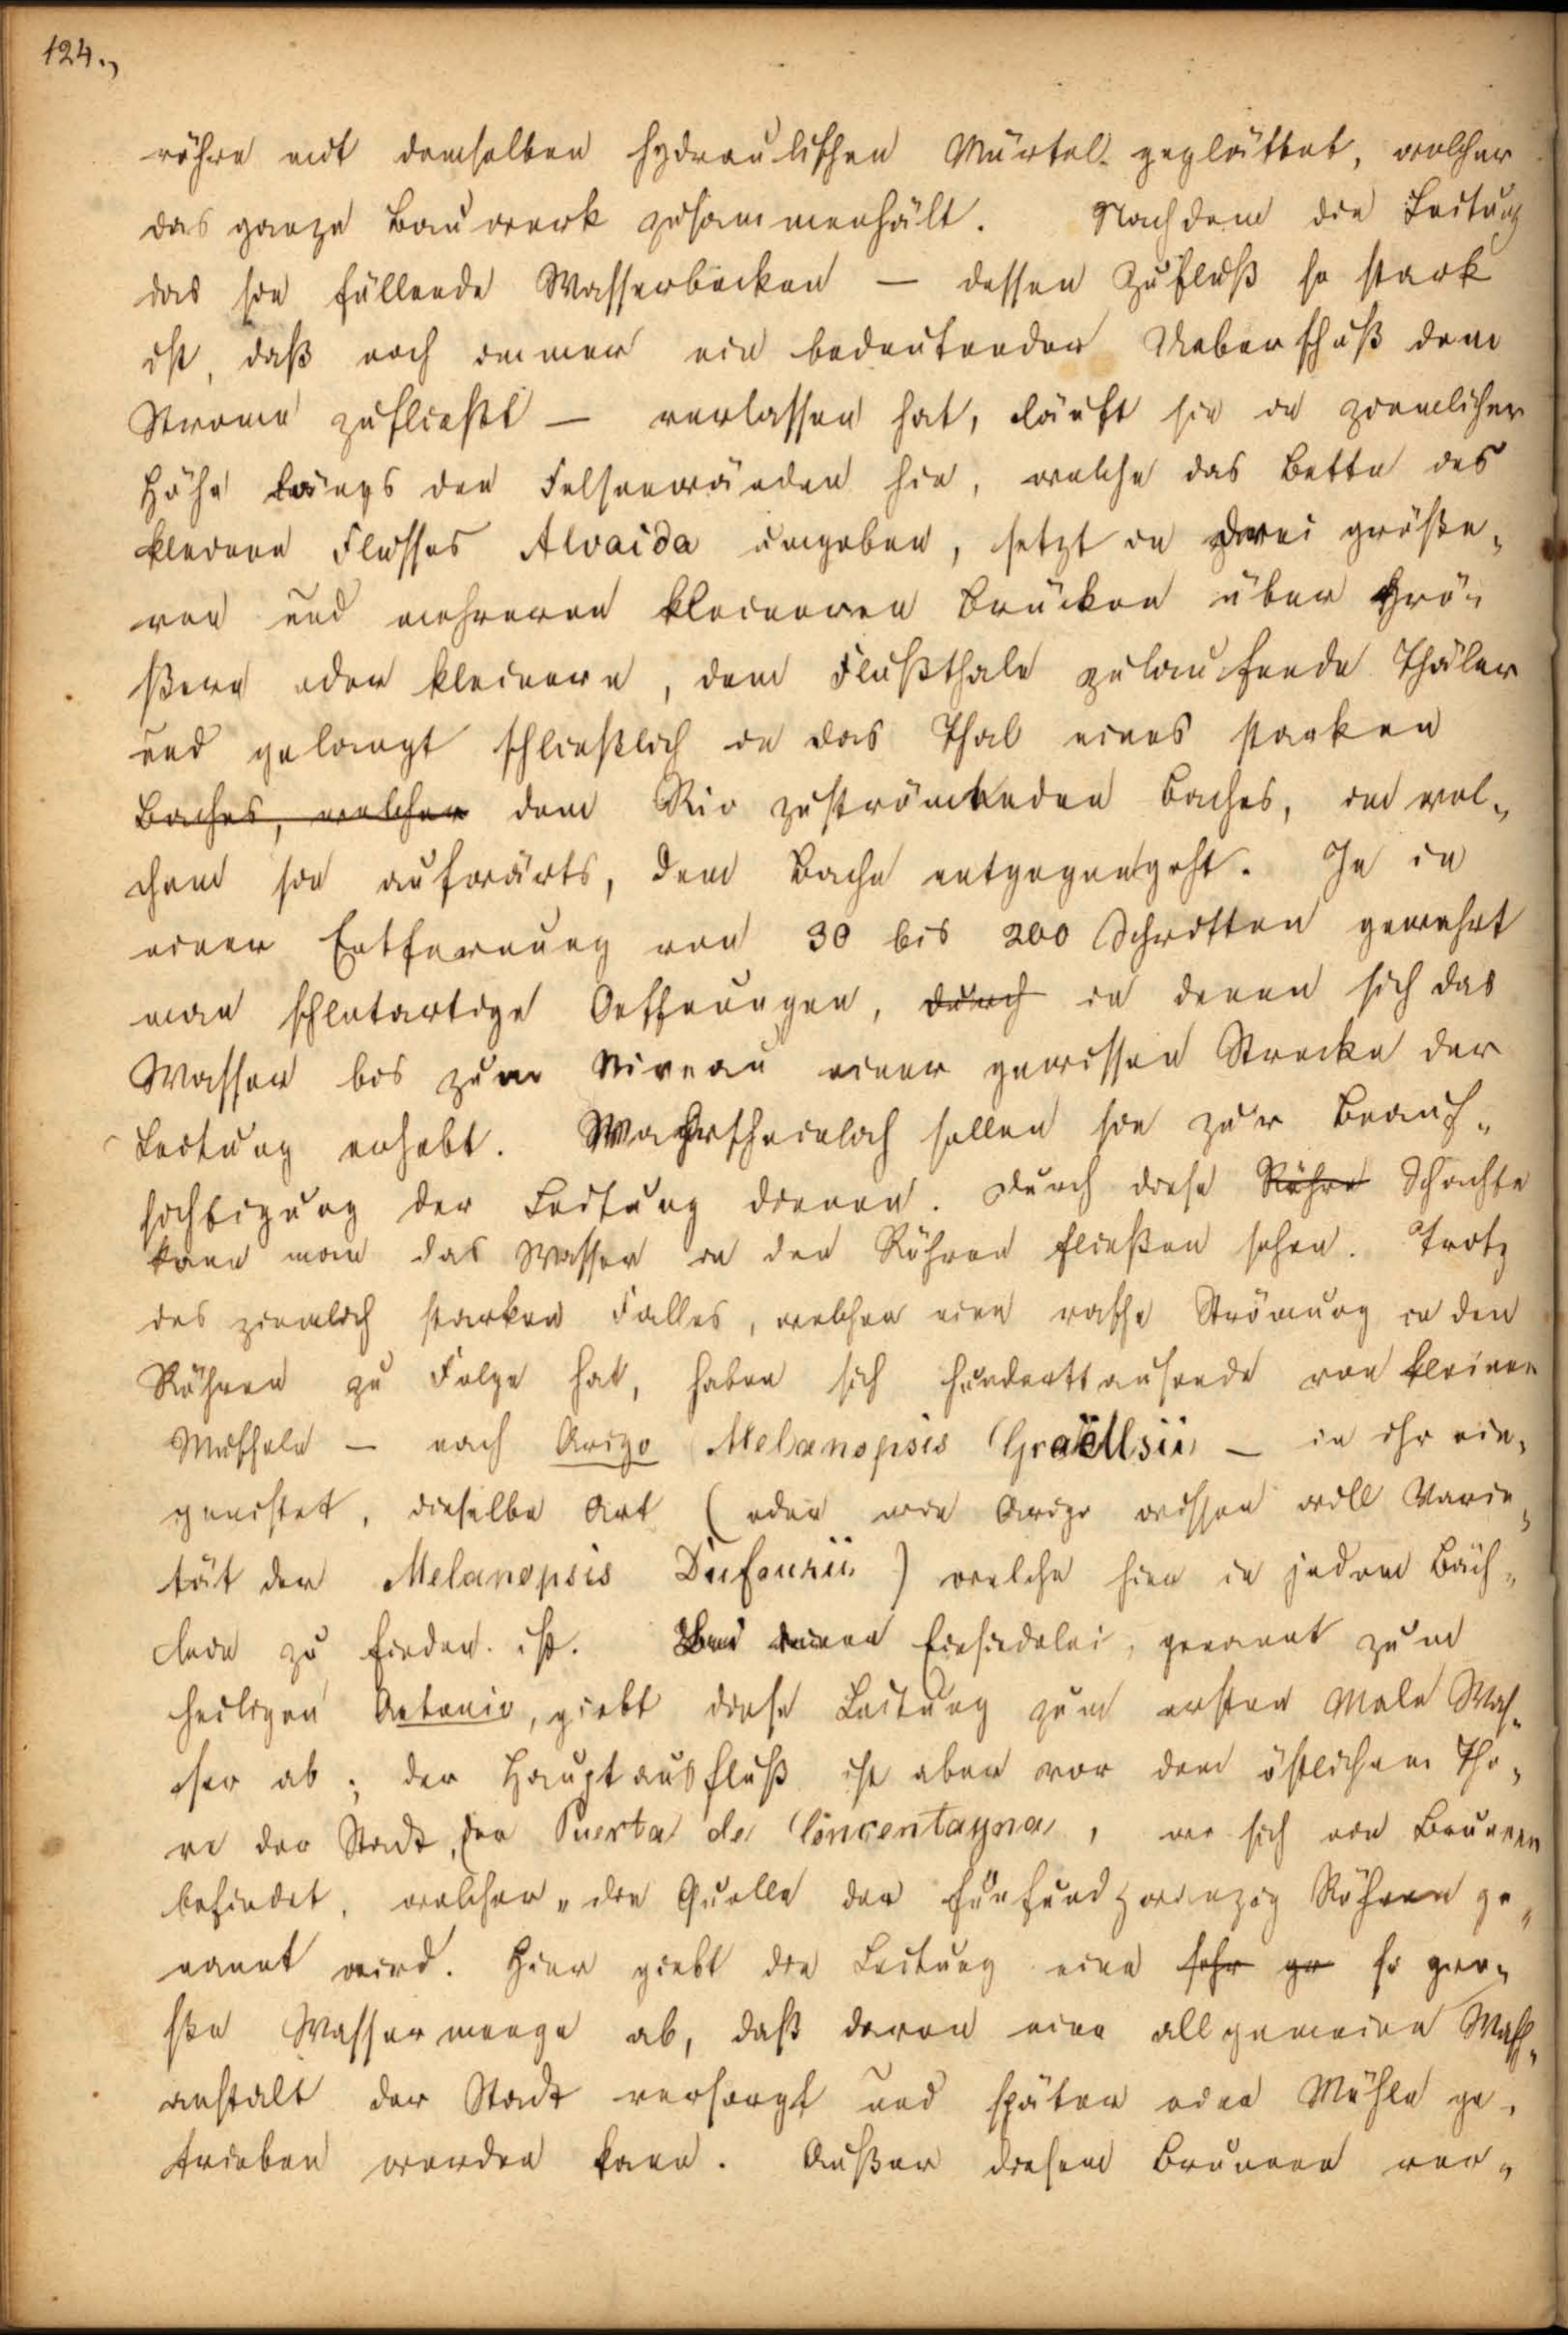 124.,
röhre mit demselben hydraulischen Mörtel geglättet, welcher
das ganze Bauwerk zusammenhält. Nachdem die Leitung
das sie füllende Wasserbecken — dessen Zufluß so stark
ist, daß noch immer ein bedeutender Ueberschuß dem
Strome zufließt — verlassen hat, läuft sie in ziemlicher
Höhe längs den Felsenwänden hin, welche das Bette des
kleinen Flusses Alvaida umgeben, setzt in drei größe-
ren und mehreren kleineren Brücken über grö-
ßere oder kleinere, dem Flußthale zulaufende Thäler
und gelangt schließlich in das Thal eines starken
Baches, welcher dem Rio zuströmenden Baches, in wel-
chem sie aufwärts, dem Bache entgegengeht. Je in
einer Entfernung von 30 bis 200 Schritten gewahrt
man schlotartige Oeffnungen, durch in denen sich das
Wasser bis zum Niveau einer gewissen Strecke der
Leitung erhebt. Wahrscheinlich sollen sie zur Beauf-
sichtigung der Leitung dienen. Durch diese Röhre Schachte
kann man das Wasser in den Röhren fließen sehen. Trotz
des ziemlich starken Falles, welcher eine rasche Strömung in den
Röhren zu Folge hat, haben sich hunderttausende von kleinen
Muscheln — nach Arigo Melanopsis Graëllsii — in ihr ein-
genistet, dieselbe Art (oder wie Arigo wissen will Varie-
tät der Melanopsis Dufourii) welche hier in jedem Bäch-
lein zu finden ist. Bei einer Einsiedelei, genannt zum
heiligen Antonio, giebt diese Leitung zum ersten Male Was-
ser ab; der Hauptausfluß ist aber vor dem östlichen Tho-
re der Stadt, der Puerta de Concentayna, wo sich ein Brunnen
befindet, welcher „die Quelle der fünfundzwanzig Röhren ge-
nannt wird. Hier giebt die Leitung eine sehr gr so gro-
ße Wassermenge ab, daß davon eine allgemeine Wasch-
anstalt der Stadt versorgt und später eine Mühle ge-
trieben werden kann. Außer diesem Brunnen ver-